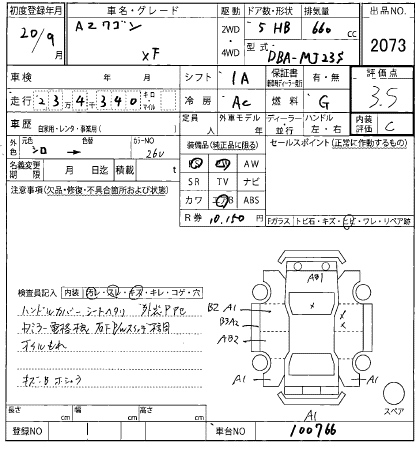 初度登録年月 車名・グレード 駆動 ドア数・形状 排気量 出品NO.
20/9月 AZワゴン 2WD 5 HB 660 cc
XF 4WD 型式 DBA-MJ23S 2073
車検 年 月 シフト IA 保証書 有・無 評価点
走行 23万4340 キロ マイル 冷房 AC 燃料 G 3.5
車歴 自家用・レンタ・事業用( ) 定員 人 外車モデル 年 ディーラー・並行 ハンドル 左・右 内装評価 C
外色 元色 シロ → 色替 カラーNO 26U 装備品(純正品に限る) セールスポイント(正常に動作するもの)
PS PW AW
名義変更期限 月 日迄 積載 t SR TV ナビ
注意事項(欠品・修復・不具合箇所および状態) カワ エアB ABS
R券 10,150円 Fガラス トビ石・キズ・ヒビ・ワレ・リペア跡
AB1
検査員記入 内装 汚レ・スレ・キズ・キレ・コゲ・穴
ハンドルカバー シートヘタリ
B2 A1
B3A2
AB2
オイルもれ
A1 A1
A1
スペア
長さ cm 幅 cm 高さ cm
登録NO 車台NO 100766